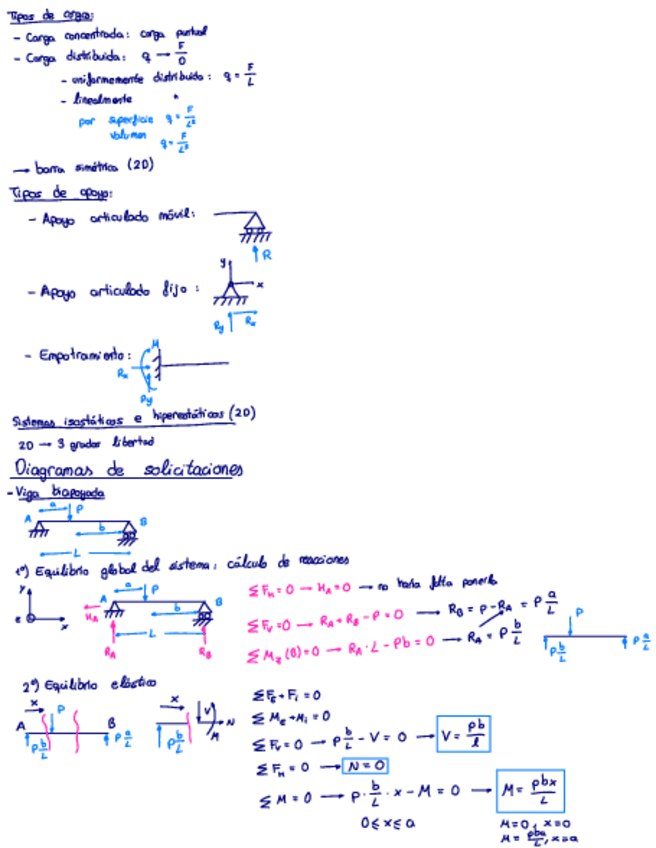 Tipos de carga:
- Carga concentrada: carga puntual
- Carga distribuida: q → F/O
- uniformemente distribuida: q = F/L
- linealmente "
por superficie q = F/L²
volumen q = F/L³
→ barra simétrica (2D)
Tipos de apoyo:
- Apoyo articulado móvil:
R
- Apoyo articulado fijo:
y
x
Ry Rx
- Empotramiento:
M
Rx
Ry
Sistemas isostáticos e hiperestáticos (2D)
2D → 3 grados libertad
Diagramas de solicitaciones
- Viga biapoyada
a P
A B
b
L
1º) Equilibrio global del sistema: cálculo de reacciones
y
z x
a P
A B
b
HA
L
RA RB
ΣFH = 0 → HA = 0 → no haría falta ponerla
ΣFV = 0 → RA + RB - P = 0 → RB = P - RA = P a/L
ΣMz (B) = 0 → RA · L - Pb = 0 → RA = P b/L
P
P b/L P a/L
2º) Equilibrio elástico
x P
A B
P b/L P a/L
x
V N
M
P b/L
ΣFE + Fi = 0
ΣME + Mi = 0
ΣFV = 0 → P b/L - V = 0 → V = Pb/l
ΣFH = 0 → N = 0
ΣM = 0 → P · b/L · x - M = 0 → M = Pbx/L
0 ≤ x ≤ a
M = 0, x = 0
M = Pba/L, x = a